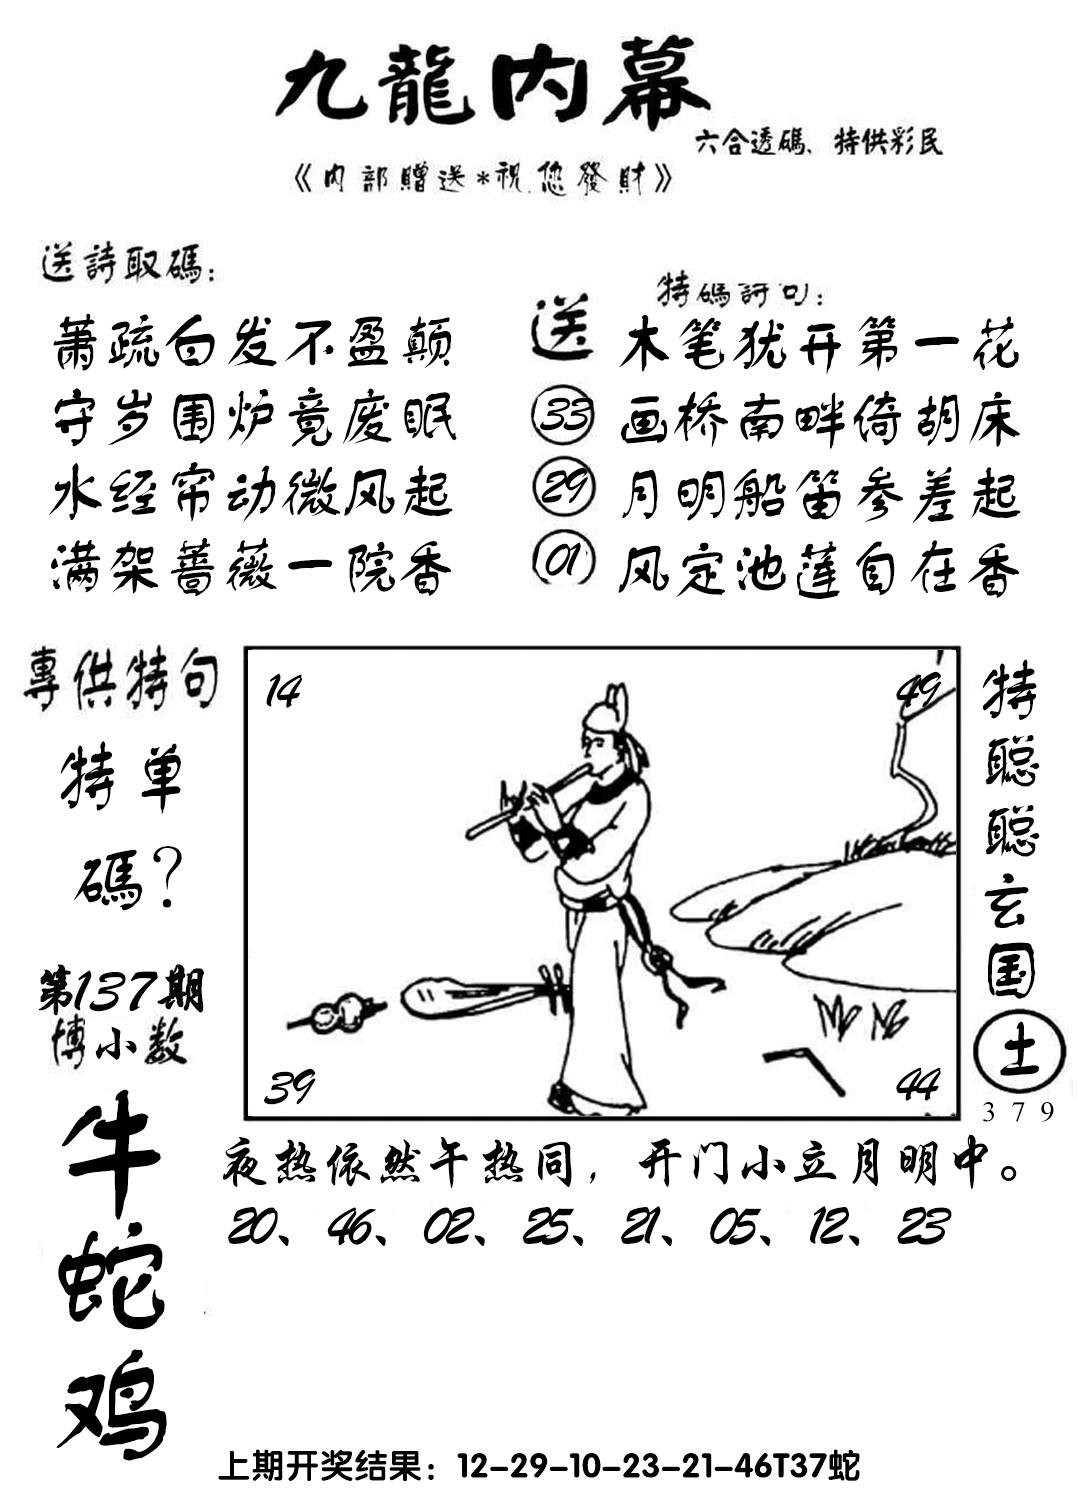 九龍内幕
六合透碼、特供彩民
《内部贈送*祝您發財》
送詩取碼：
萧疏白发不盈颠
守岁围炉竟废眠
水经帘动微风起
满架蔷薇一院香
送
33
29
01
特碼詩句：
木笔犹开第一花
画桥南畔倚胡床
月明船笛参差起
风定池莲自在香
專供特句
特单
碼？
第137期
博小数
牛
蛇
鸡
14
49
39
44
特聪聪玄国
土
379
夜热依然午热同，开门小立月明中。
20、46、02、25、21、05、12、23
上期开奖结果：12-29-10-23-21-46T37蛇